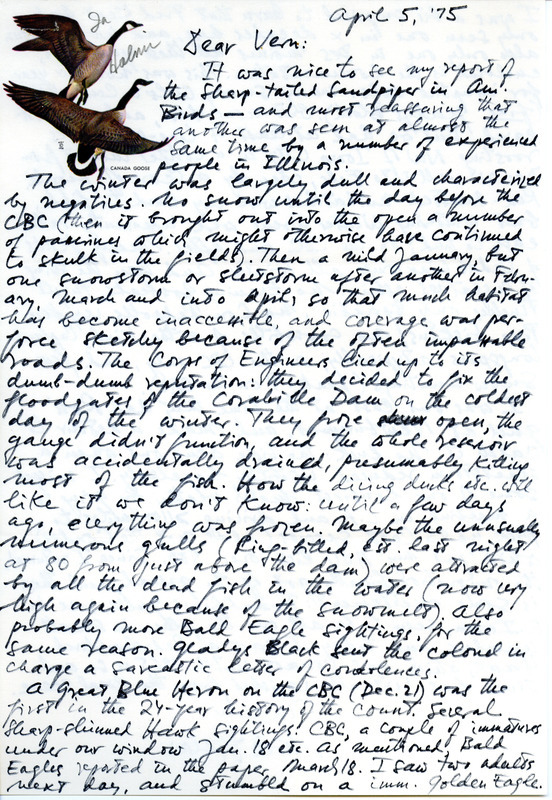 April 5, '75
Ia
Halmi
Dear Vern:
It was nice to see my report of
the Sharp-tailed Sandpiper in Am.
Birds — and most reassuring that
another was seen at almost the
same time by a number of experienced
people in Illinois.
CANADA GOOSE
The winter was largely dull and characterized
by negatives. No snow until the day before the
CBC (then it brought out into the open a number
of passerines which might otherwise have continued
to skulk in the fields). Then a mild January, but
one snowstorm or sleetstorm after another in Febru-
ary, March and into April, so that much habitat
has become inaccessible, and coverage was per-
force sketchy because of the often impassable
roads. The Corps of Engineers lived up to its
dumb-dumb reputation: they decided to fix the
floodgates of the Coralville Dam on the coldest
day of the winter. They froze open, the
gauge didn't function, and the whole reservoir
was accidentally drained, presumably killing
most of the fish. How the diving ducks etc. will
like it we don't know: until a few days
ago, everything was frozen. Maybe the unusually
numerous gulls (Ring-billed, est. last night
at 80 from just above the dam) were attracted
by all the dead fish in the water (now very
high again because of the snowmelt). Also
probably more Bald Eagle sightings, for the
same reason. Gladys Black sent the colonel in
charge a sarcastic letter of condolences.
A Great Blue Heron on the CBC (Dec. 21) was the
first in the 24-year history of the count. Several
Sharp-shinned Hawk sightings: CBC, a couple of immatures
under our window Jan. 18 etc. As mentioned, Bald
Eagles reported in the paper March 18. I saw two adults
next day, and stumbled on a imm. Golden Eagle.